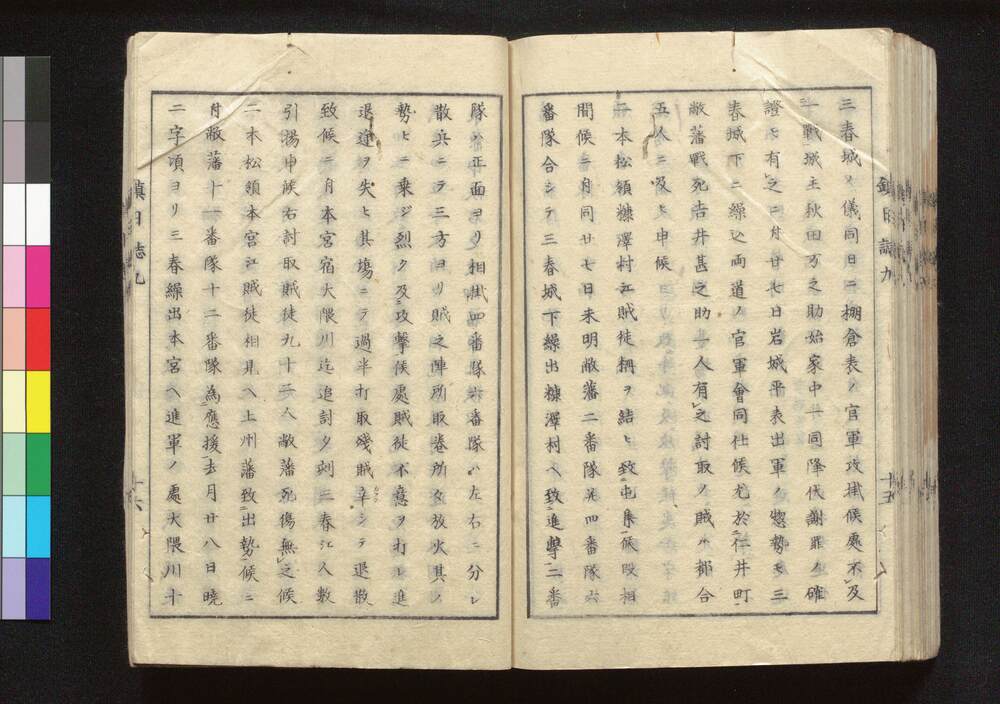 三春城ノ儀同日ニ棚倉表ノ官軍攻掛候處不及
一戰城主秋田万之助始家中一同降伏謝罪ノ確
證ヒ有之ニ付廿七日岩城平表出軍ノ惣勢モ三
春城下ニ繰込両道ノ官軍會同仕候尤於仁井町
敝藩戰死吉井甚之助一人有之討取ノ賊ハ都合
五人ニ及ヒ申候
二本松領糠澤村江賊徒柵ヲ結ヒ致屯集候段相
聞候ニ付同廿七日未明敝藩二番隊并四番隊六
番隊合シテ三春城下繰出糠澤村ヘ致進擊二番
隊ハ正面ヨリ相掛四番隊六番隊ハ左右ニ分レ
散兵ニテ三方ヨリ賊之陣所取巻所々放火其ノ
勢ヒニ乗ジ烈ク及攻擊候處賊徒不意ヲ打レ進
退途ヲ失ヒ其塲ニテ過半打取殘賊辛シテ退散
致候ニ付本宮宿大隈川迄追討夕刻三春江人數
引揚申候右討取賊徒九十三人敝藩死傷無之候
二本松領本宮江賊徒相見ヘ上州藩致出勢候ニ
付敝藩十一番隊十二番隊為應援去月廿八日曉
二字頃ヨリ三春繰出本宮ヘ進軍ノ處大隈川十
鎮日誌九
十五
鎮日誌九
十六